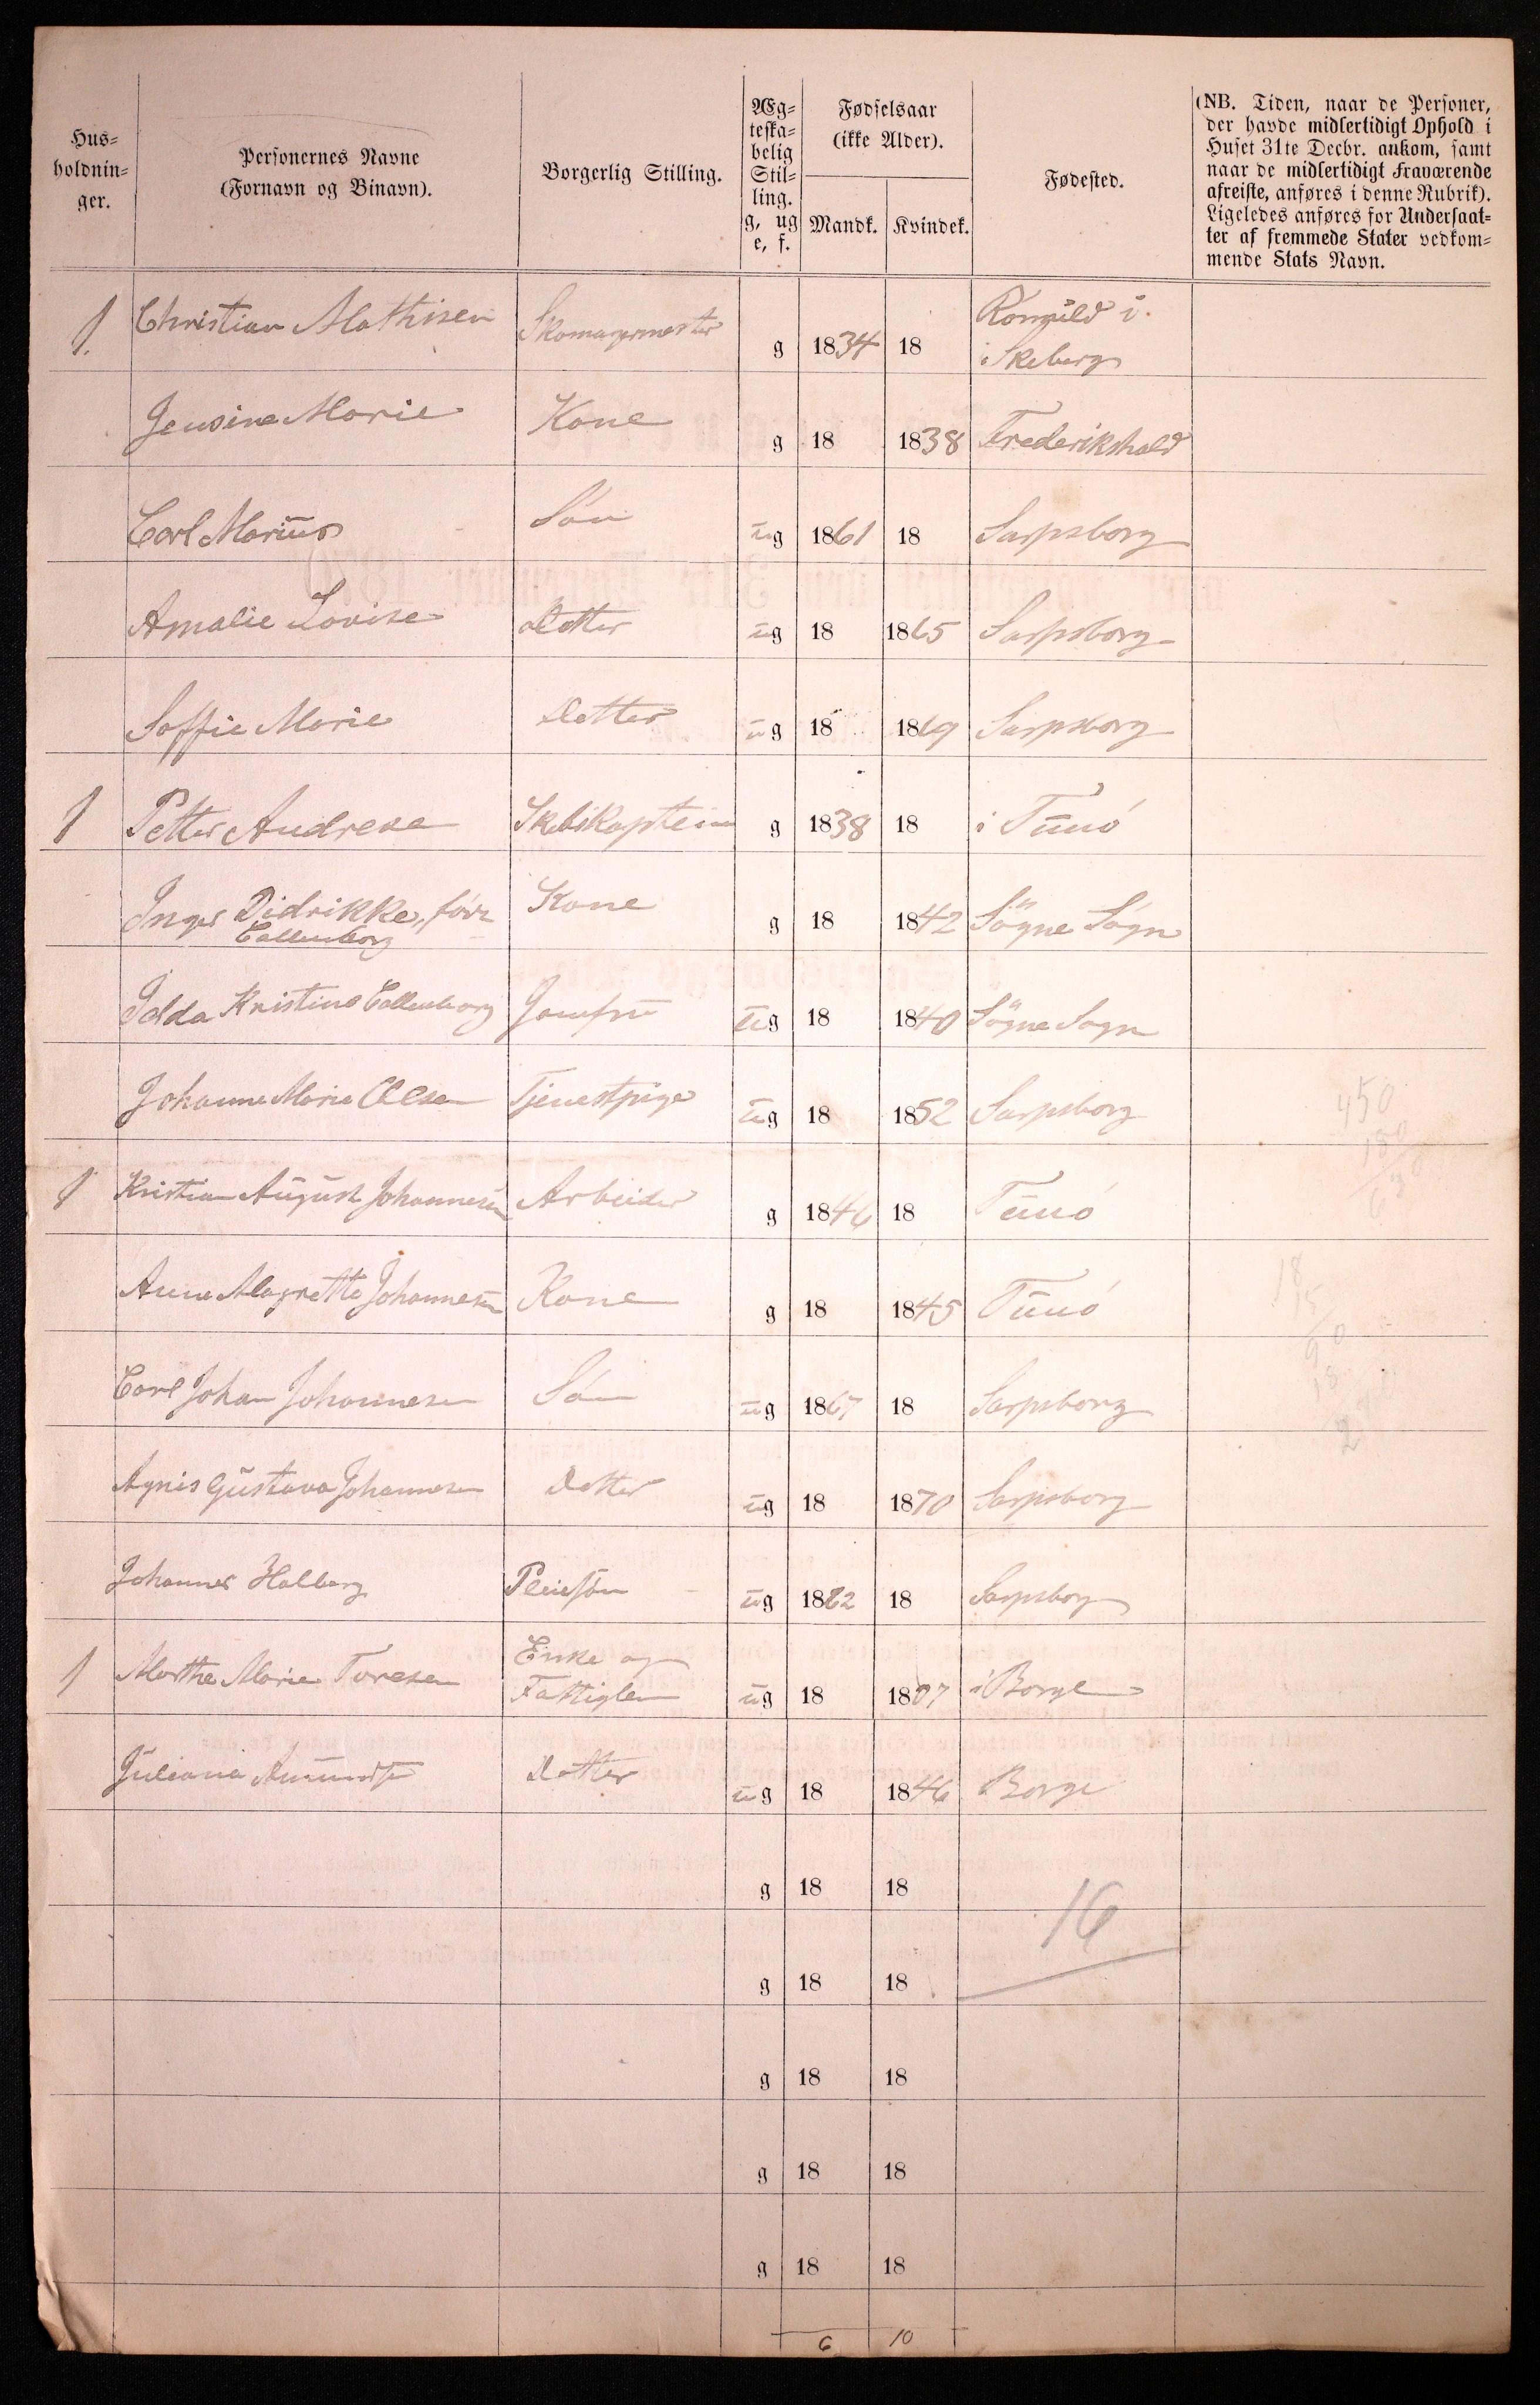 Hus-
holdnin-
ger.
Personernes Navne
(Fornavn og Binavn).
Borgerlig Stilling.
Æg-
teska-
belig
Stil-
ling.
g, ug
e, f.
Fødselsaar
(ikke Alder).
Mandk. Kvindek.
Fødested.
(NB. Tiden, naar de Personer,
der havde midlertidigt Ophold i
Huset 31te Decbr. ankom, samt
naar de midlertidigt Fraværende
afreiste, anføres i denne Rubrik).
Ligeledes anføres for Undersaat-
ter af fremmede Stater vedkom-
mende Stats Navn.
1 Christian Mathisen Skomagermester g 1834 18 i
i Skeberg
Jensine Marie Kone g 18 1838 Frederikshald
Carl Marius Søn ug 1861 18 Sarpsborg
Amalie Lovise Detter ug 18 1865 Sarpsborg
Soffie Marie Detter ug 18 1869 Sarpsborg
1 Petter Andrese Skibskaptein g 1838 18 i Tunø
Inger Didrikke, föd Kone g 18 1842 Sögne Sogn
Callenborg
Idda Kristine Callenborg Jomfru ug 18 1840 Sögne Sogn
Johanne Marie Olsen Tjenestpige ug 18 1852 Sarpsborg
1 Kristian August Johannesen Arbeider g 1846 18 Tunø
Anne Magrette Johannesen Kone g 18 1845 Tunø
Carl Johan Johannesen Søn ug 1867 18 Sarpsborg
Agnis Gustava Johannesen Detter ug 18 1870 Sarpsborg
Johannes Halberg Pleiesøn ug 1862 18 Sarpsborg
1 Marthe Marie Toresen Enke og
Fattiglem ug 18 1807 i Borge
Juliana Amundsen Dotter ug 18 1846 Borge
g 18 18
16
g 18 18
g 18 18
g 18 18
g 18 18
6 10
450
180
630
18
15
90
18